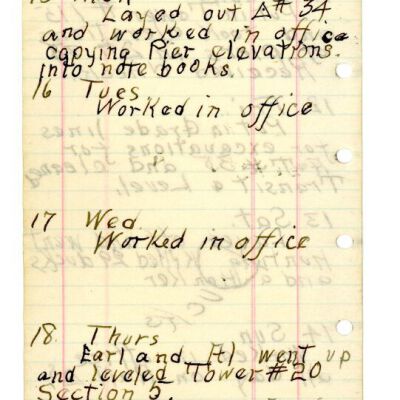 15 Mon
Layed out Δ# 34
and worked in office
copying Pier elevations
into note books.
16 Tues
Worked in office
17 Wed
Worked in office
18 Thurs
Earl and Al went up
and leveled Tower #20
Section 5.